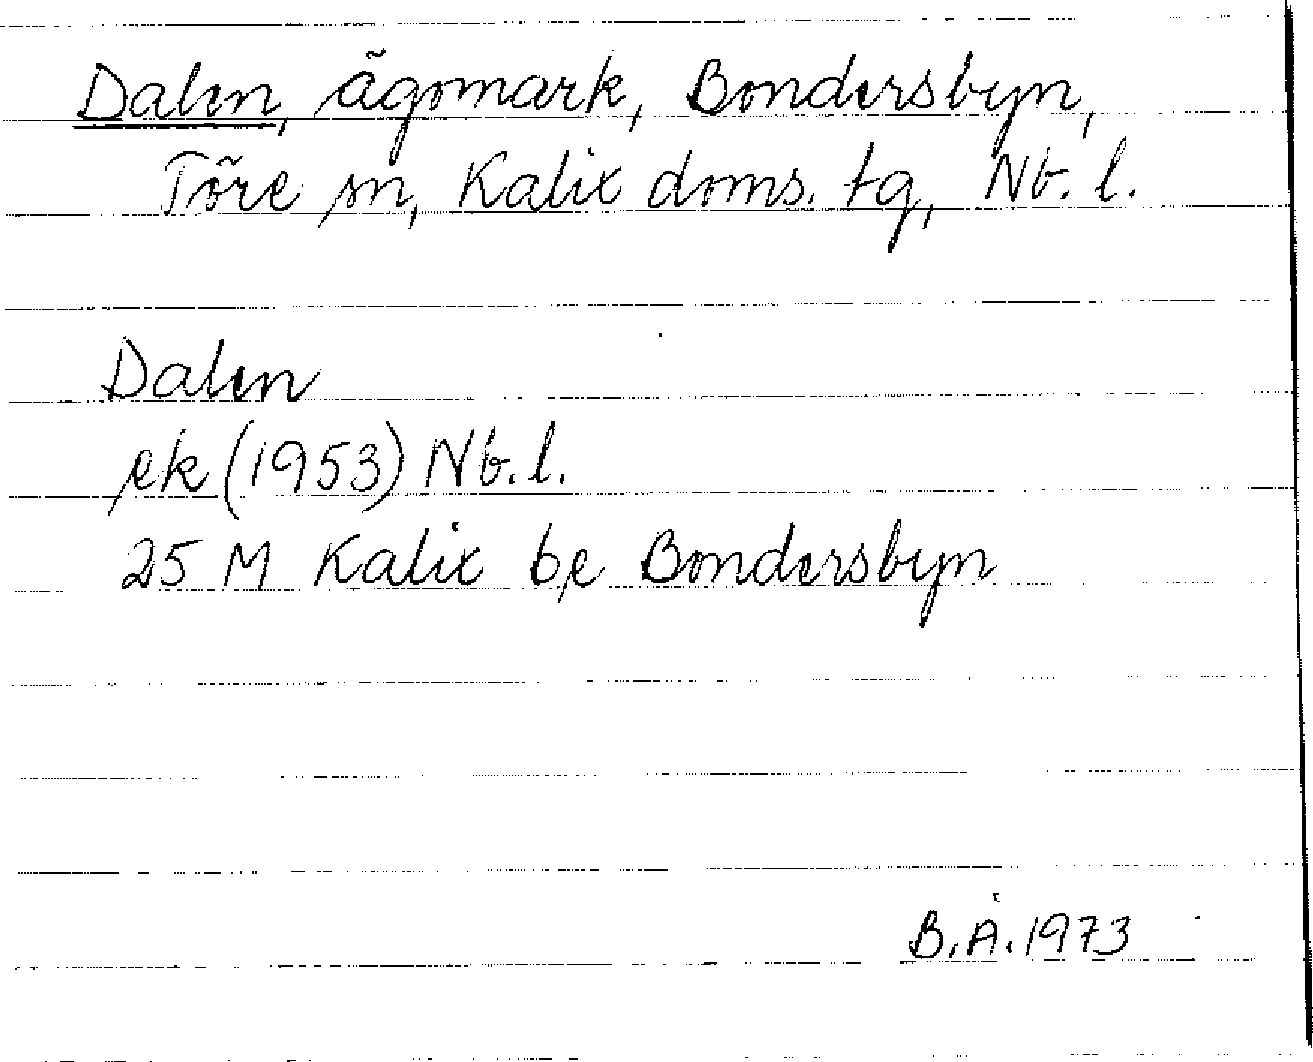 Dalen, ägomark, Bondersbyn,
Töre sn, Kalix doms. tg, Nb. l.
Dalen
ek (1953) Nb. l.
25 M Kalix be Bondersbyn
B.Å. 1973